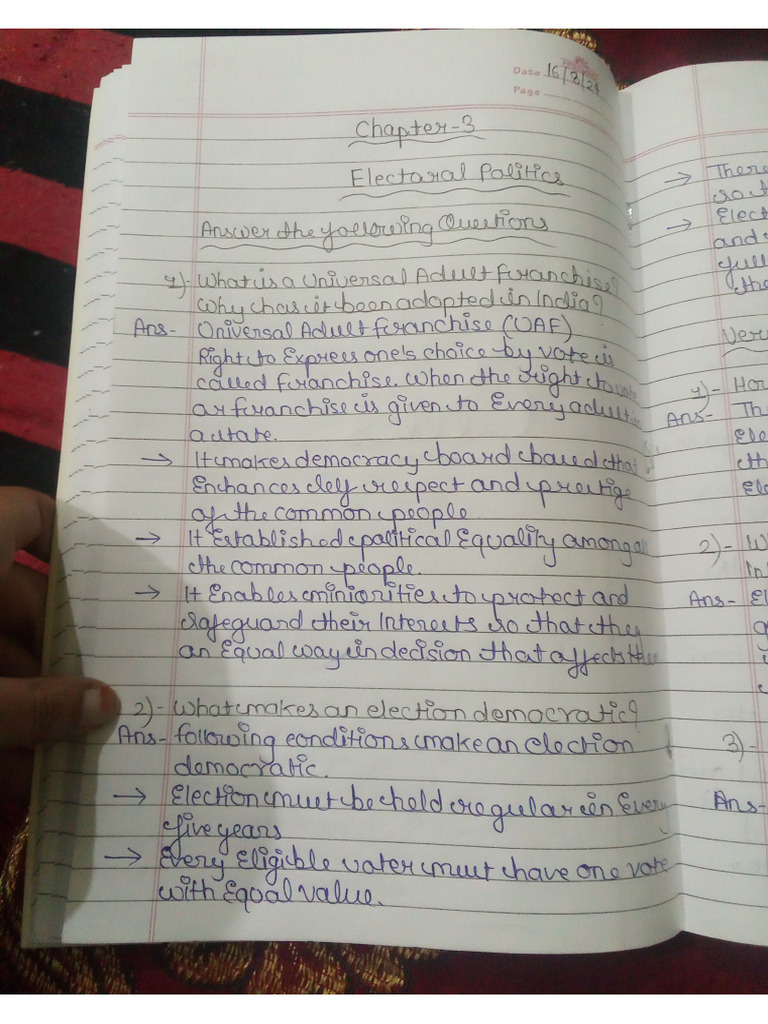 Date 16/2/24
Page
Chapter-3
Electoral Politics
Answer the following Questions
1)- What is a Universal Adult franchise?
Why has it been adopted in India?
Ans- Universal Adult franchise (UAF)
Right to Express one's choice by vote is
called franchise. When the right to vote
or franchise is given to Every adult in
a state.
→ It makes democracy board based that
Enhances respect and prestige
of the common people
→ It Established political Equality among
the common people.
→ It Enables miniorities to protect and
safeguard their Interests so that they
an Equal way in decision that affects
2)- What makes an election democratic?
Ans- following conditions make an election
democratic.
→ Election must be held regular in Every
five years
→ Every Eligible voter must have one vote
with Equal value.
→ There
so t
→ Elect
and
full
the
Very
1)- How
Ans- Th
Ele
th
Ele
2)- W
In
Ans- El
3)-
Ans-